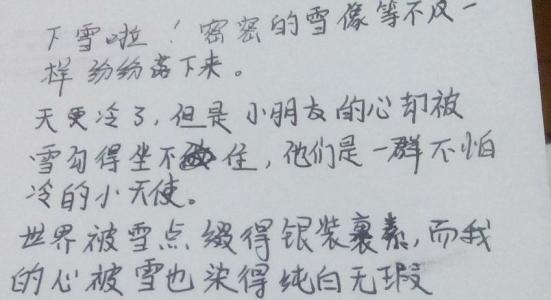 下雪啦！密密的雪像等不及一
样纷纷落下来。
天更冷了，但是小朋友的心却被
雪勾得坐不住，他们是一群不怕
冷的小天使。
世界被雪点缀得银装裹素，而我
的心被雪也染得纯白无瑕